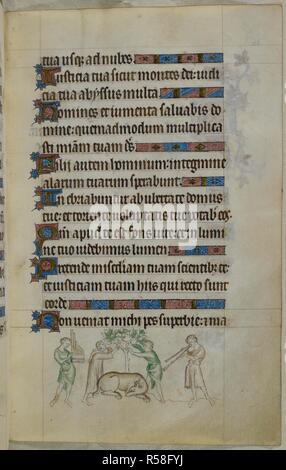 tua usq; ad nubes
Iusticia tua sicut montes dei: iudi
cia tua abyssus multa
Homines et iumenta saluabis do
mine: quemadmodum multiplica
sti miam tuam ds
Filii autem hominum: in tegmine
alarum tuarum sperabunt
Inebriabuntur ab ubertate domus
tue: et torrente uoluptatis tue potabis eos
Qm apud te est fons uite: et in lumi
ne tuo uidebimus lumen
Pretende misericordiam tuam scientibus te:
et iusticiam tuam hiis qui recto sunt
corde
Non ueniat michi pes superbie: et ma
alamy
R58FYJ